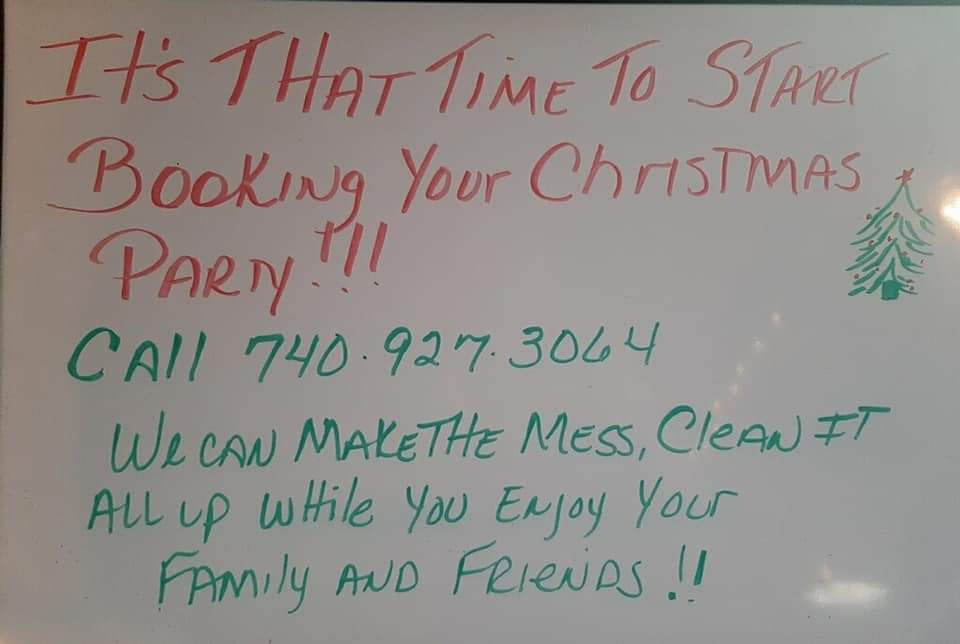 It's THAT TIME To START
BOOKING Your ChrISTMAS
PARTY!!!
CAll 740.927.3064
We CAN MAKE THE MESS, CleAN IT
ALL up WHile You ENjoy Your
FAMily AND FRIeNDS!!